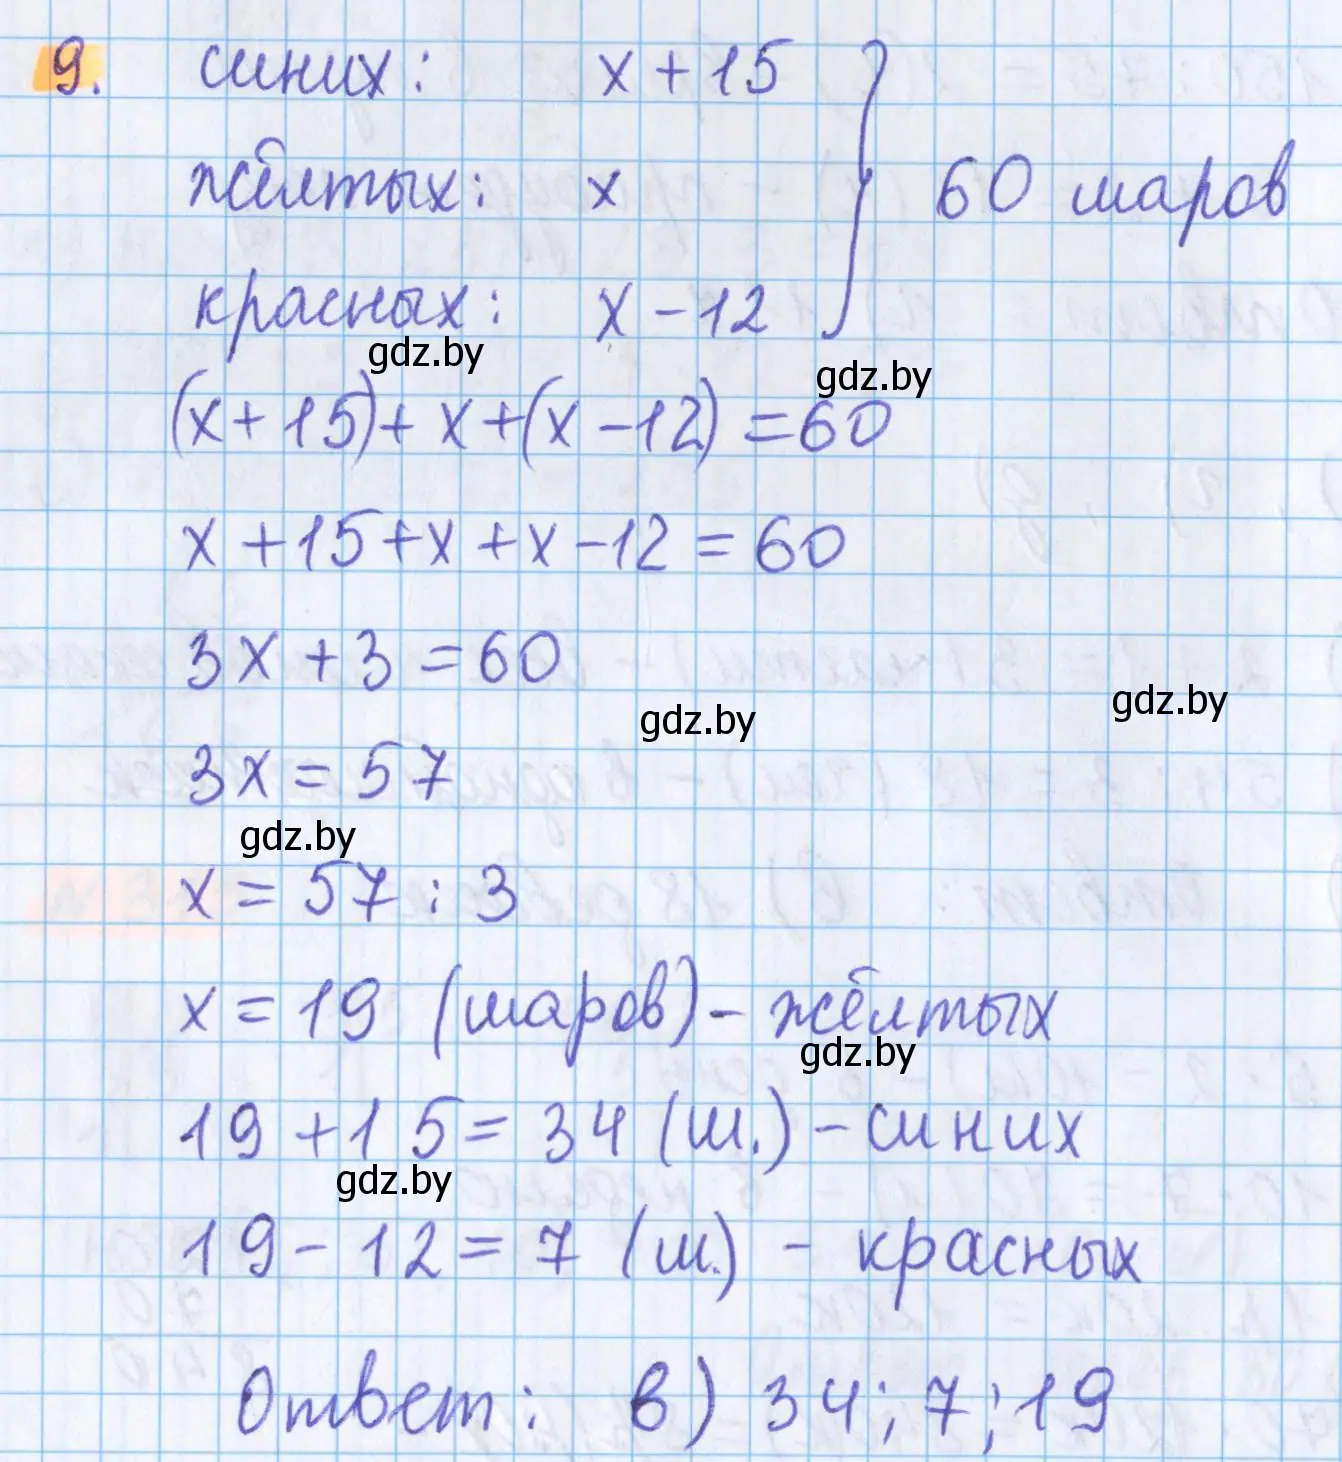 9. синих: x + 15
жёлтых: x } 60 шаров
красных: x - 12
gdz.by
gdz.by
(x + 15) + x + (x - 12) = 60
x + 15 + x + x - 12 = 60
3x + 3 = 60
gdz.by
gdz.by
3x = 57
gdz.by
x = 57 : 3
x = 19 (шаров) - жёлтых
gdz.by
19 + 15 = 34 (ш.) - синих
gdz.by
19 - 12 = 7 (ш.) - красных
Ответ: в) 34; 7; 19